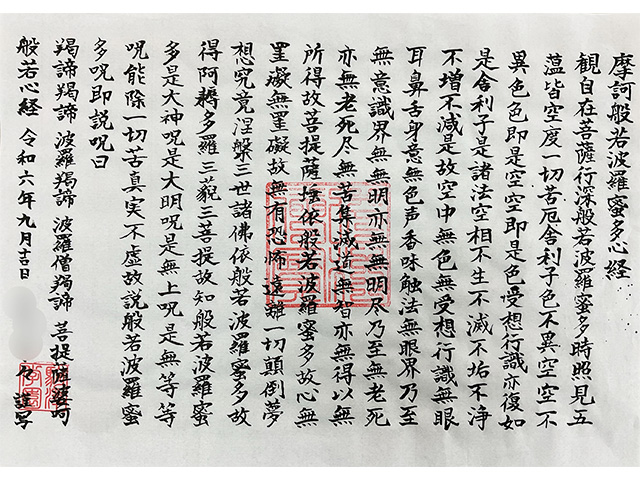 摩訶般若波羅蜜多心経
観自在菩薩行深般若波羅蜜多時照見五
薀皆空度一切苦厄舎利子色不異空空不
異色色即是空空即是色受想行識亦復如
是舎利子是諸法空相不生不滅不垢不浄
不増不減是故空中無色無受想行識無眼
耳鼻舌身意無色声香味触法無眼界乃至
無意識界無無明亦無無明尽乃至無老死
亦無老死尽無苦集滅道無智亦無得以無
所得故菩提薩埵依般若波羅蜜多故心無
罣礙無罣礙故無有恐怖遠離一切顛倒夢
想究竟涅槃三世諸佛依般若波羅蜜多故
得阿耨多羅三藐三菩提故知般若波羅蜜
多是大神呪是大明呪是無上呪是無等等
呪能除一切苦真実不虚故説般若波羅蜜
多呪即説呪曰
羯諦羯諦 波羅羯諦 波羅僧羯諦 菩提薩婆訶
般若心経 令和六年九月吉日 謹写